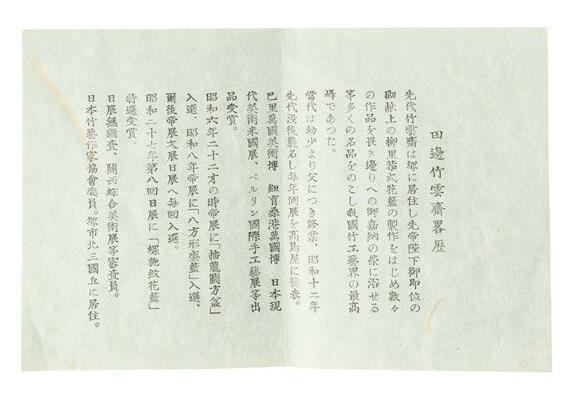 田邊竹雲齋畧歴
先代竹雲齋は堺に居住し先帝陛下御即位の
砌献上の柳里恭式花籃の製作をはじめ数々
の作品を畏き邊りへの御嘉納の榮に浴せる
等多くの名品をのこし我國竹工藝界の最高
峰であつた。
當代は幼少より父につき修業、昭和十二年
先代没後襲名し毎年個展を高島屋に發表。
巴里萬國美術博 紐育桑港萬國博 日本現
代美術米國展、ベルリン國際手工藝展等出
品受賞。
昭和六年二十二才の時帝展に「蟠龍圖方盆」
入選、昭和八年帝展に「八方形盛籃」入選、
爾後帝展文展日展へ毎回入選。
昭和二十七年第八回日展に「螺旋紋花籃」
特選受賞。
日展無鑑査、關西綜合美術展等審査員。
日本竹藝作家協會委員。堺市北三國丘に居住。